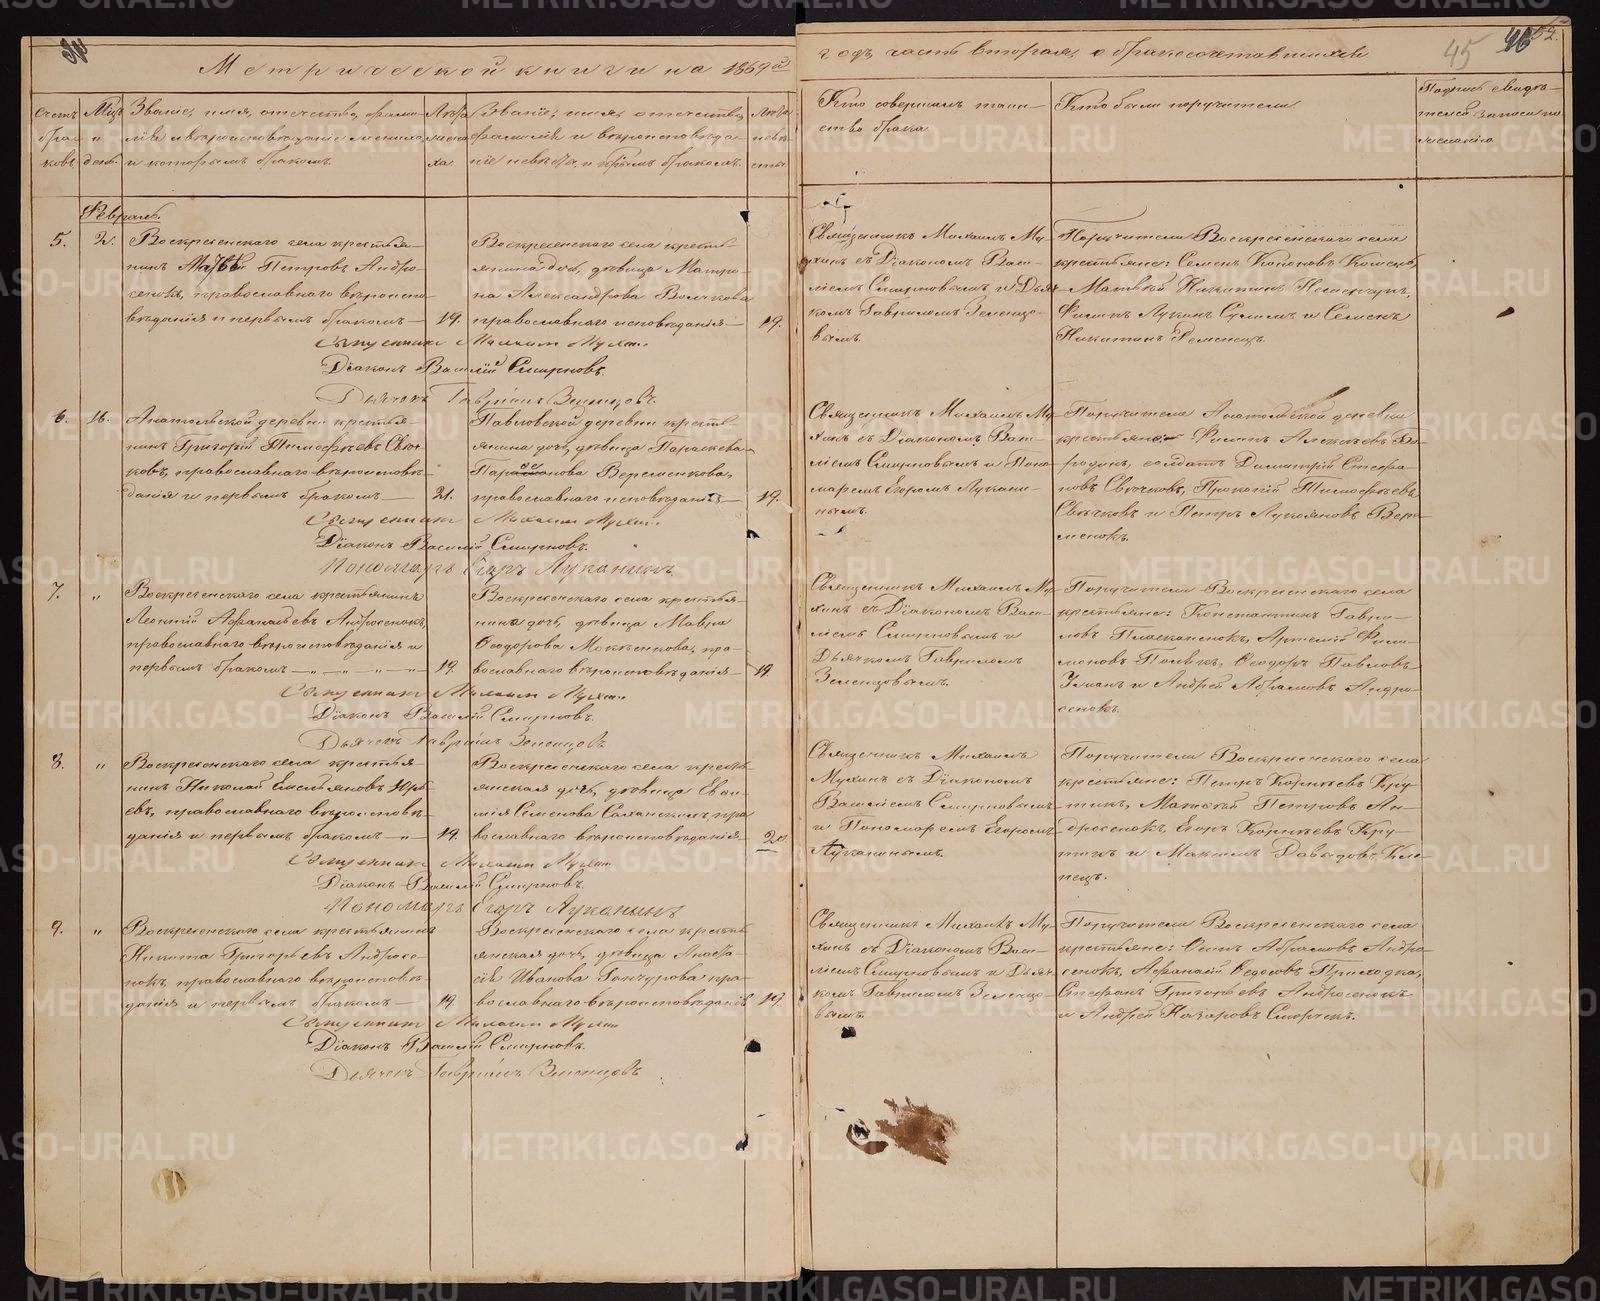 Метрической книги на 1869й
годъ часть вторая, о бракосочетавшихся
45
46
52.
Счетъ бра- ковъ
Мцъ и день.
Званіе, имя, отечество, фами-
лія и вѣроисповѣданіе жениха
и которымъ бракомъ.
Лѣта жениха.
Званіе, имя, отечество,
фамилія и вѣроисповѣда-
ніе невѣсты, и кот͠рымъ бракомъ.
Лѣта невѣ- сты
Кто совершалъ таин-
ство брака
Кто были поручители
Подпись свидѣ-
телей записи по
желанію.
Февраль.
5. 2. Воскресенскаго села крестья-
нинъ Матвѣй Петровъ Андро-
сенокъ, православнаго вѣроиспо-
вѣданія и первымъ бракомъ— 19.
Воскресенскаго села кресть-
янина дочь, дѣвица Матро-
на Александрова Волчкова
православнаго исповѣданія— 19.
Священникъ Михаилъ Му-
хинъ съ Діакономъ Васи-
ліемъ Смирновымъ и Дьяч-
комъ Гавріиломъ Зеленцо-
вымъ.
Поручители Воскресенскаго села
крестьяне: Семенъ
Матвѣй Никитинъ
Филипъ Лукинъ и Семенъ
Никитинъ Ременецъ.
Священникъ Михаилъ Мухинъ
Діаконъ Василій Смирновъ.
Дьячекъ Гавріилъ Зеленцовъ.
6. 16. Анатольской деревни крестья-
нинъ Григорій Тимофѣевъ Свѣч-
ковъ, православнаго вѣроисповѣ-
данія и первымъ бракомъ— 21.
Павловской деревни кресть-
янина дочь, дѣвица Параскева
Веременкова,
православнаго исповѣданія— 19.
Священникъ Михаилъ Му-
хинъ съ Діакономъ Васи-
ліемъ Смирновымъ и Поно-
маремъ Егоромъ Лукани-
нымъ.
Поручители Анатольской деревни
крестьяне: Филипъ Алексѣевъ Бо-
родинъ, солдатъ Димитрій Стефа-
новъ Свѣчковъ, Прокопій Тимофѣевъ
Свѣчковъ и Петръ Лукояновъ Вере-
менокъ.
Священникъ Михаилъ Мухинъ
Діаконъ Василій Смирновъ.
Пономарь Егоръ Луканинъ
7. „ Воскресенскаго села крестьянинъ
Леонтій Афанасьевъ Андросенокъ,
православнаго вѣроисповѣданія и
первымъ бракомъ —„—„—„— 19.
Воскресенскаго села крестья-
нина дочь, дѣвица Мавра
Ѳеодорова Моккенкова, пра-
вославнаго вѣроисповѣданія— 19.
Священникъ Михаилъ Му-
хинъ съ Діакономъ Васи-
ліемъ Смирновымъ и
Дьячкомъ Гавріиломъ
Зеленцовымъ.
Поручители Воскресенскаго села
крестьяне: Константинъ Гаври-
ловъ Артемій Фили-
моновъ Ѳеодоръ Павловъ
и Андрей Абрамовъ Андро-
сенокъ.
Священникъ Михаилъ Мухинъ
Діаконъ Василій Смирновъ.
Дьячекъ Гавріилъ Зеленцовъ
8. „ Воскресенскаго села крестья-
нинъ Николай Емельяновъ Юрь-
евъ, православнаго вѣроисповѣ-
данія и первымъ бракомъ —„— 19.
Воскресенскаго села кресть-
янская дочь, дѣвица Евѳи-
мія Семенова пра-
вославнаго вѣроисповѣданія— 20.
Священникъ Михаилъ
Мухинъ съ Діакономъ
Василіемъ Смирновымъ
и Пономаремъ Егоромъ
Луканинымъ.
Поручители Воскресенскаго села
крестьяне: Петръ Корнѣевъ Кру-
тикъ, Матвѣй Петровъ Ан-
дросенокъ, Егоръ Корнѣевъ Кру-
тикъ и Максимъ Давыдовъ
Священникъ Михаилъ Мухинъ
Діаконъ Василій Смирновъ.
Пономарь Егоръ Луканинъ
9. „ Воскресенскаго села крестьянинъ
Никита Григорьевъ Андросе-
нокъ, православнаго вѣроисповѣ-
данія и первымъ бракомъ— 19.
Воскресенскаго села кресть-
янская дочь, дѣвица Анаста-
сія Иванова Гончурова пра-
вославнаго вѣроисповѣданія 19.
Священникъ Михаилъ Му-
хинъ съ Діакономъ Васи-
ліемъ Смирновымъ и Дьяч-
комъ Гавріиломъ Зеленцо-
вымъ.
Поручители Воскресенскаго села
крестьяне: Осипъ Абрамовъ Андро-
сенокъ, Афанасій Ѳедосовъ Приходка,
Стефанъ Григорьевъ Андросенокъ
и Андрей Назаровъ Сморчекъ.
Священникъ Михаилъ Мухинъ
Діаконъ Василій Смирновъ.
Дьячекъ Гавріилъ Зеленцовъ
METRIKI.GASO-URAL.RU